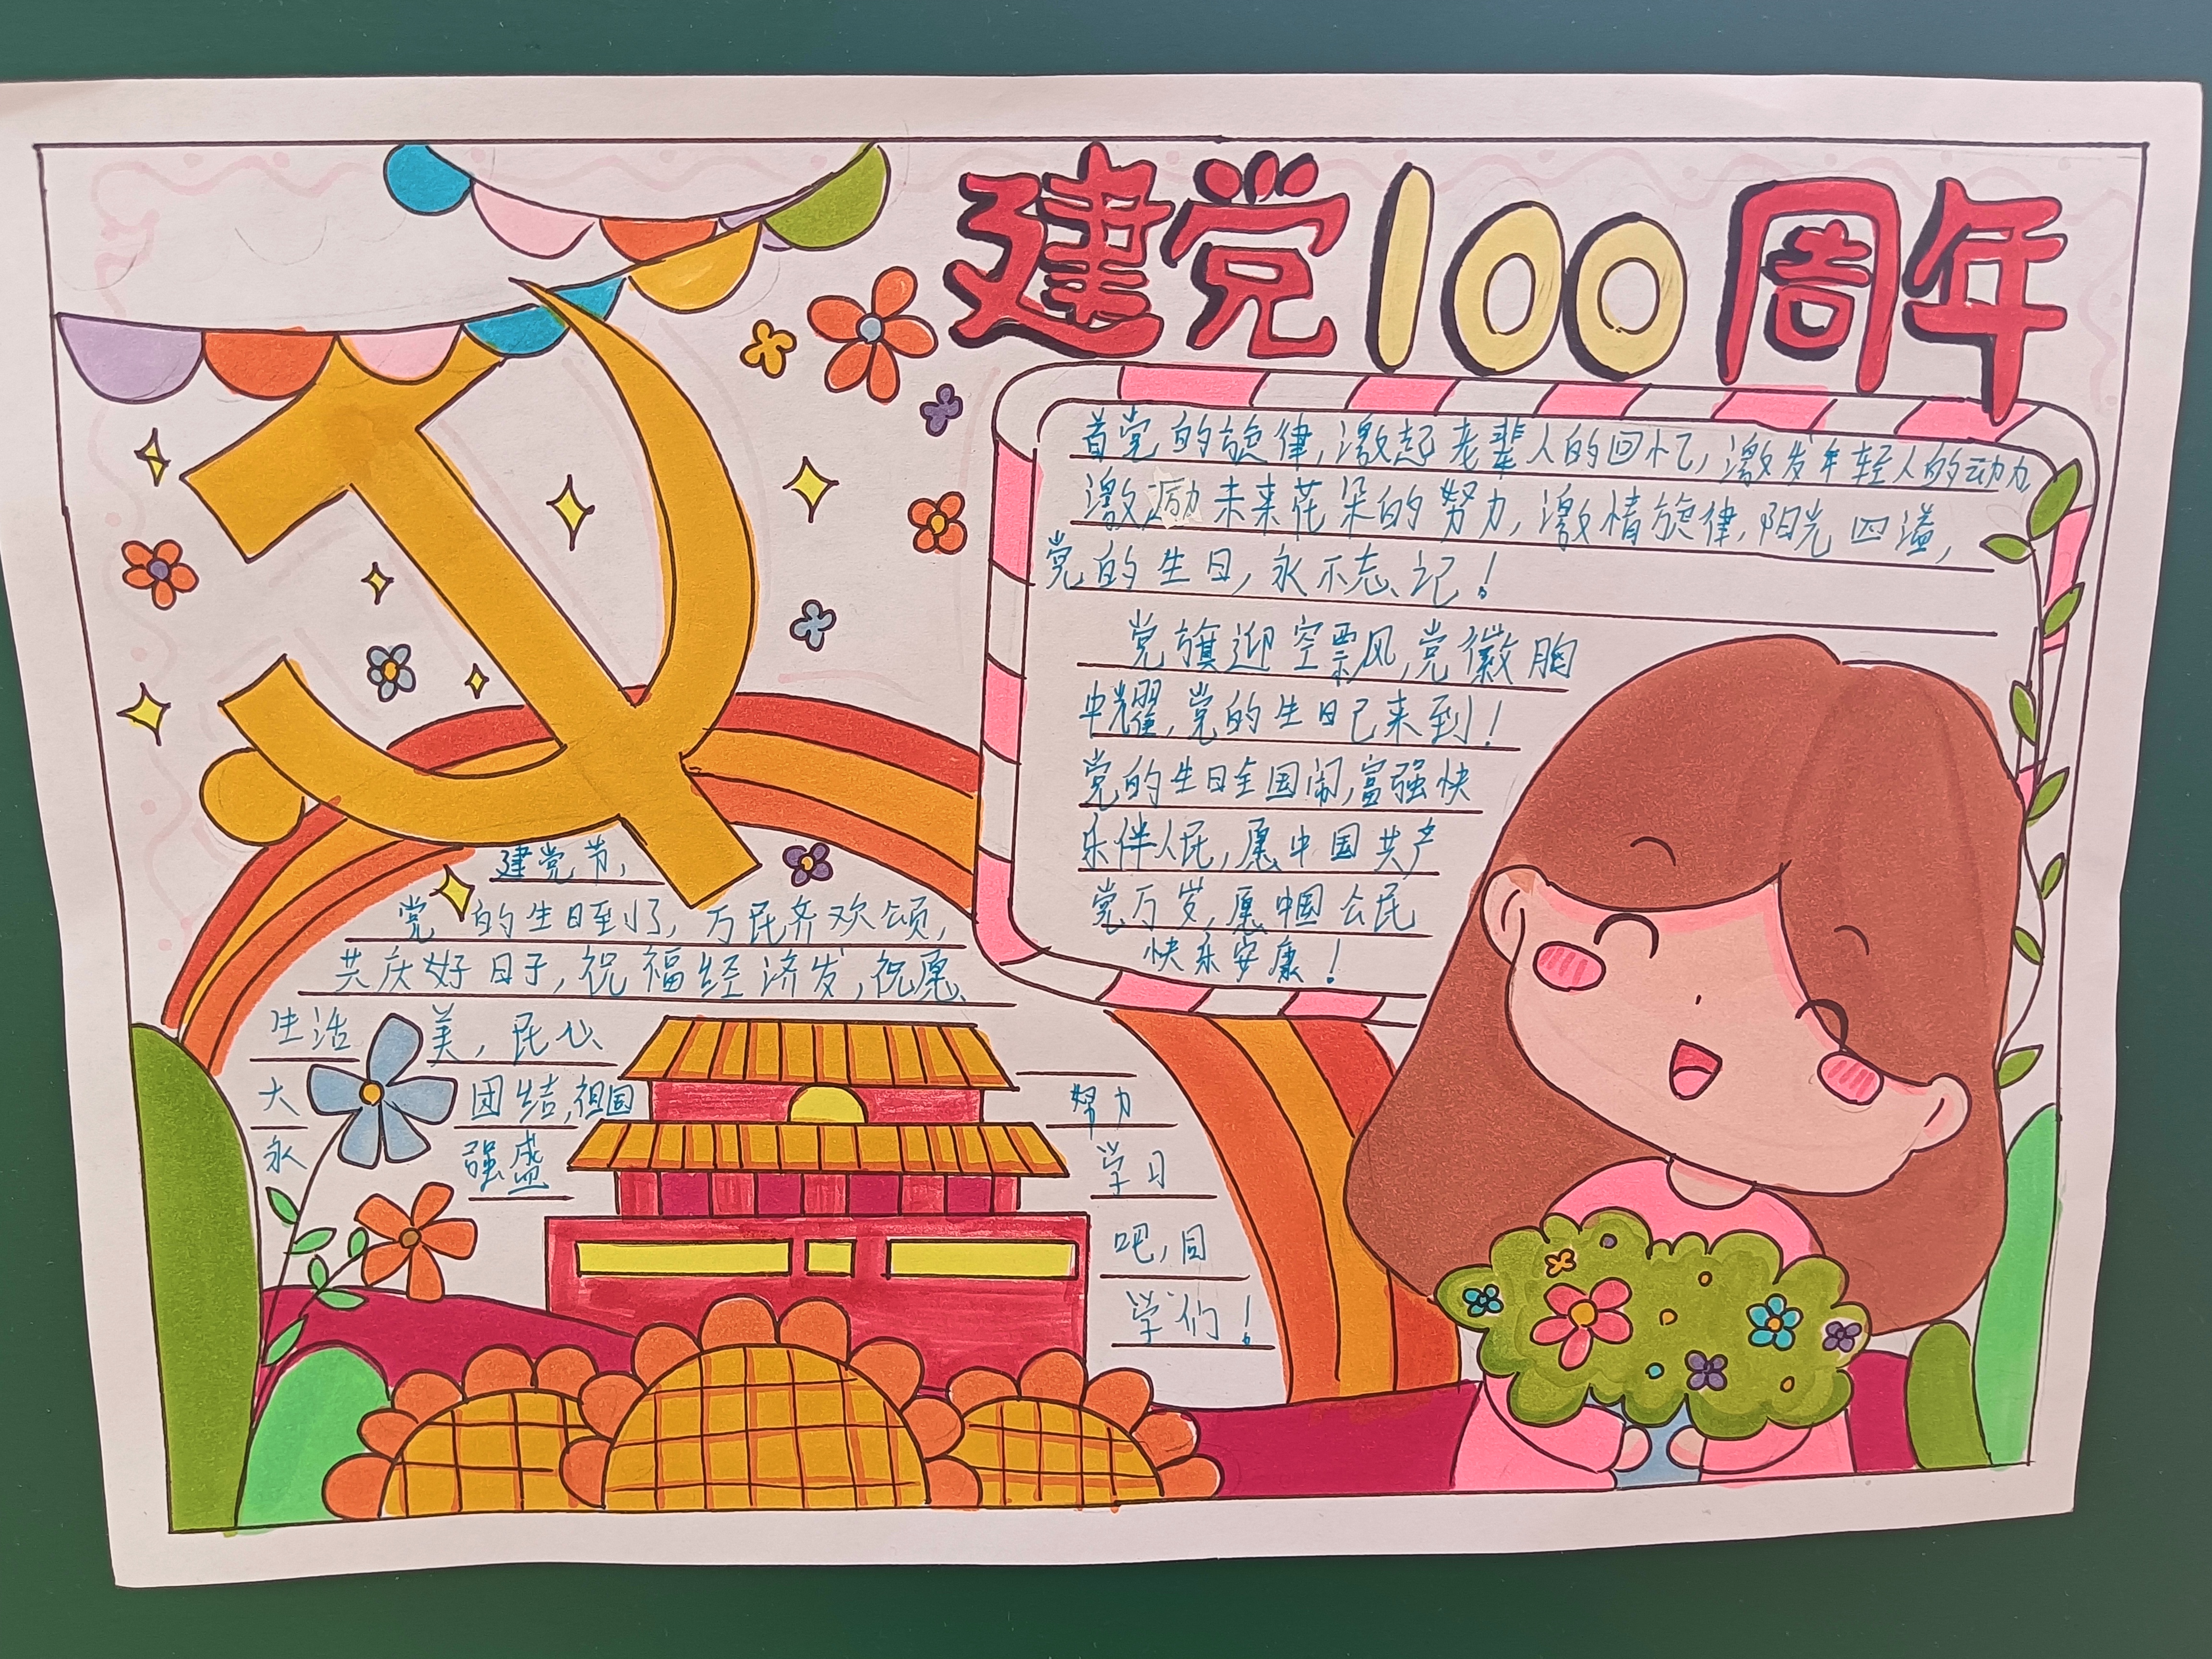 建党100周年
首党的旋律,激起老辈人的回忆,激发年轻人的动力
激励未来花朵的努力,激情旋律,阳光四溢,
党的生日,永不忘记!
党旗迎空票风,党徽胸
中耀,党的生日已来到!
党的生日全国闹,富强快
乐伴人民,愿中国共产
党万岁,愿中国公民
快乐安康!
建党节,
党的生日到了,万民齐欢颂,
共庆好日子,祝福经济发,祝愿
生活美,民心
大团结,祖国
永强盛
努力
学习
吧,同
学们!